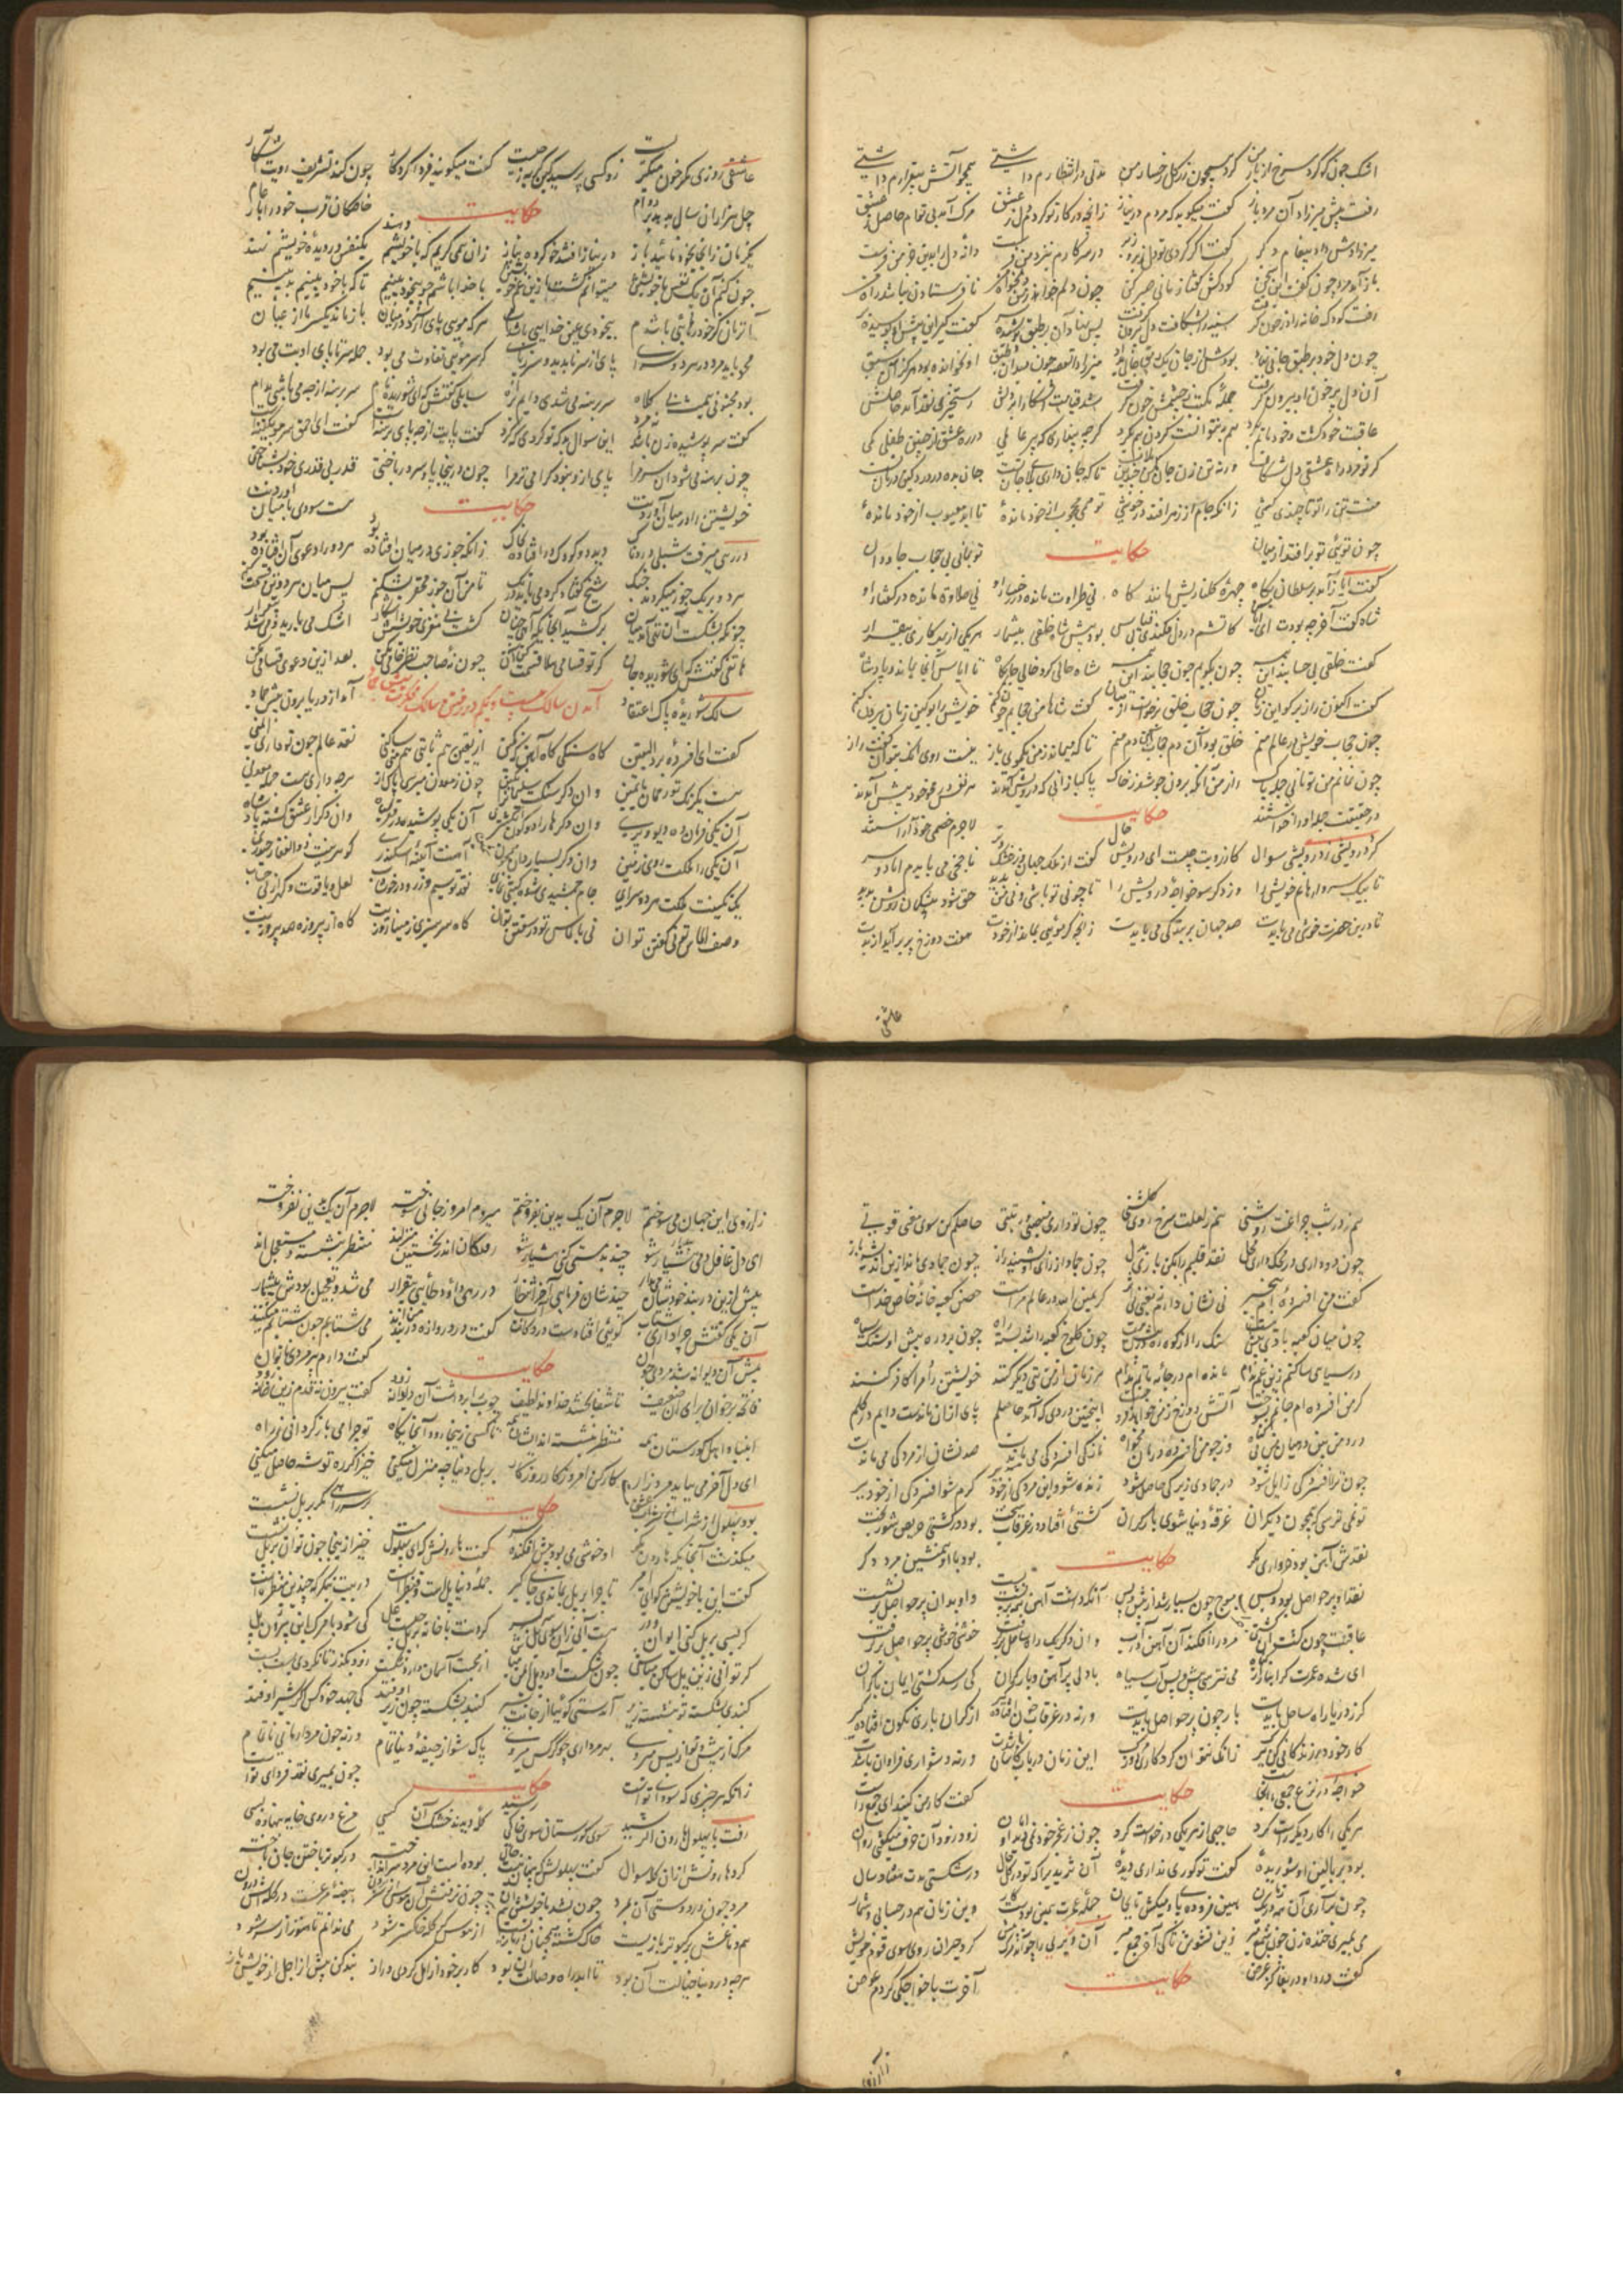 اشک چون گوگرد سرخ از باز من گرد همچون زر کل رخسار من مدتی در انتظارم داشتی همچو آتش بیقرارم داشتی
رفت پیش میرزاد آن مرد باز گفت میگوید که مردم در نیاز زانچه در کار تو کردم از عشق مرک آمد بی توام حاصل ز عشق
میرزادش داد پیغام دگر گفت اگر کردی تو دل زیر و زبر در سر کارم بنزد من فرست دانهٔ دل
باز آمد مرد چون گفت این سخن کودکش گفتا زمانی صبر کن چون دلم خواهد ز من دلخواه من تا فرستادن نباشد راه من
رفت کودک خانه را در خون گرفت سینه را بشکافت دل بیرون گرفت پس نهاد آن بر طبق پوشیده سر گفت گیر این پیش او پوشیده بر
چون دل خود بر طبق جانی نهاد بودش از جان یک رمق جان بداد
آن دل پر خون او بیرون گرفت جمله مکتب ز چشمش خون گرفت
عاقبت خود کشت و خود ماتم بکرد هم نتوانست کردن هم بکرد گرچه بسیاری که پیر عاملی در ره عشق از چنین طفلی کمی
گر تو مرد راه عشقی دل شکاف ورنه تن زن جان مکن چندین ملاف تا که جان داری بلای جان تست جان بده در درد کین درمان تست
هست تن را تو تا چندی کشی زانکه جام از زهر افتد در خوشی تو همی محجوب از خود ماندهٔ تا ابد معیوب از خود ماندهٔ
چون تویی تو برافتد از میان تو بمانی بی حجاب جاودان
حکایت
گفت ایاز آمد بر سلطان پگاه چهرهٔ گلنارش مانند کاه نی طراوت مانده در رخسار او نی حلاوت مانده در گفتار او
شاه گفت آخر چه بودت ای ایاز کاتشم در دل فکندی
گفت خلقی بی حسابند این همه چون بگویم چون حجابند این همه شاه خالی کرد خالی جایگاه تا ایاس آنجا بماند و پادشاه
گفت اکنون راز برگو این زمان چون حجاب خلق برخاست از میان گفت شاها من حجابم چون کنم خویش را بو کین زمان بیرون کنم
چون حجاب خویش در عالم منم خلق بود آن دم حجاب این دم منم تا که میماند ز من یک موی باز نیست روی آنک بتوان گفت راز
چون نمانم من تو مانی جمله پاک راز من آنگه برون جوشد ز خاک پاکبازانی که درویش آمدند هر نفس در محو خود پیش آمدند
در حقیقت جمله او را خواستند لاجرم خصمی خود آراستند
حکایت
کرد درویشی ز درویشی سوال کارزویت چیست ای درویش حال گفت از ملک جهان در خشک و تر
تا بیک سر وارهانم خویش را وز دگر سو خواجهٔ درویش را تا چو نی تو باشی و نی من پدید حق شود بیشک از آن روشن پدید
تا درین حضرت خوشی می بایدت صد جهان پر بندگی می بایدت زانچه گر موئی بماند از خودت هفت دوزخ پر برآید از بدت
عاشقی
عاشقی روزی مگر خون میگریست زو کسی پرسید کین گریه ز چیست گفت میگویند فردا کردگار چون کند تشریف رویت آشکار
چل هزاران سال بدهد بر دوام خاصگان قرب خود را بار عام
حکایت
یکزمان زانجا بخود آیند باز در نیاز افتند خو کرده بناز زان همی گریم که با خویشم دهند یکنفس در دیدهٔ خویشم نهند
چون کنم آن یک نفس با خویش من میتوان کشتن ازین غم خویش من با خدا باشم چو بیخود بینیم تا که با خود بینیم بد بینیم
آن زمان کز خود رهائی باشدم بیخودی عین خدایی باشدم هر که موئی پای آرد در میان باز ماند یکسر ما از عیان
محو باید مرد در هر دو سرا پای از سر ناپدید و سر ز پا گر سر موئی تفاوت می بود جمله سر تا پای او بت می بود
بود مجنونی همیشه بی کلاه سر برهنه می شدی دایم براه سایلی گفتش که ای شوریده نام سر برهنه از چه می باشی مدام
گفت سر پوشیده زن باشد نه مرد این سوال بد که تو کردی که کرد گفت پایت از چه پای برهنه است گفت ای احمق سرم نیز برهنه است
چون برهنه می شود آن سر مرا پای ازو نبود گرامی تر مرا چون درینجا پا و سر درباختی قدر بی قدری خود بشناختی
خویشتن را در میان آوردنت هست سودی با میان آوردنت
حکایت
در رهی میرفت شبلی دردناک دید دو کودک درافتاده بخاک زانکه جوزی در میان افتاده بود هر دو را دعوی آن افتاده بود
هر دو بر یک جوز میکردند جنگ شیخ گفتا کرد می باید درنگ تا من آن جوز محقر بشکنم پس میان هر دو تن قسمت کنم
چونکه بشکست آن تهی آمد میان برکشید آنجایگه آهی چنان گشت بی مغزی خویشش آشکار اشک می بارید و می شد بیقرار
هاتفی گفتش که ای شوریده جان گر تو قسامی هلا قسمت کن آن چون نهٔ صاحب نظر خامی مکن بعد ازین دعوی قسامی مکن
سالک شوریدهٔ پاک اعتقاد آمدن سالک بیست و یکم در رفتن سالک فکرت پیش جماد آمد از دریا برون پیش جماد
گفت ای افسردهٔ برد الیقین گاه سنگی گاه آهن نقش کین از یقین هم ثابتی هم ساکنی نقد عالم چون تو داری ایمنی
هست یکرنگ تو رحمان را یمین وان دگر سنگ سلیمان را نگین چون ز معدن میرسی پاک آمدی هرچه داری هست جمله معدنی
آن یکی فرمان ده دیو و پری وان دگر هادی کون مشتری آن یکی پوشیده صدر و قبله گاه وان دگر از عشق گشته پادشاه
آن یکی را ملکت روی زمین وان دگر بسیار دان آمت آئینهٔ اسکندری گوهر تیغت ذوالفقار حیدری
یک نگینت ملکت هر دو سرای جام جمشیدی شده گیتی نمای نقد تو سیم و زر و در خوشاب لعل و یاقوت و گهر از بی حساب
وصف الماس تو نی گفتن توان نی بالماس تو در سفتن توان گاه سر سبزی ز مینا بر تو زیست گاه از پیروزه صد پیروزیست
هم ز در شب چراغت روشنی هم ز لعلت سرخ روی گلشنی چون تو داری منصبی و رتبتی حاصلم کن سوی معنی قوتی
چون زر و داری و محک داری محل نقد قلبم را بکن با زر بدل چون جماد از راز او بشنید راز چون جمادی ماند ازین اندیشه باز
گفت من افسردهٔ ام بیخبر نی نشان دارم ز معنی نی اثر گر یمین الله در عالم مراست حصن کعبه خانهٔ خاص خداست
چون میان کعبه بادی بیش نیست سنگ را از کوه ره در پیش نیست چون کلوخ کعبه را شد بسته راه چون برد ره پیش او سنگ سیاه
در سیاهی ساکنم زین غم مدام مانده ام در جامهٔ ماتم مدام هر زمان از من بتی دیگر کنند خویشتن را و مرا کافر کنند
کز من افسرده ام جانم بسوخت آتش دوزخ ز من خواهد فروخت اینچنین دردی که آمد حاصلم پای ازان ماندست دایم در گلم
درد من بین در میان من بی گناه وز چو من افسرده درمان مخواه تا ز من افسردگی می بایدت صد نشان از مردگی می بایدت
چون ترا افسردگی زایل شود در جمادی زیرکی حاصل شود زنده شو و این مردگی از خود ببر گرم شو افسردگی از خود ببر
تو نمی ترسی که همچون دیگران غرقهٔ دنیا شوی بار گران کشتئی افتاد در غرقاب سخت بود در کشتی حریص شوربخت
نقدش آهن بود خرواری مگر بود با او همنشین مرد دگر
حکایت
نقد او پر حواصل بود و بس موج چون بسیار شد از پیش و پس آنکه داشت آهن بر آهن برنشست و او بدان پر حواصل برنشست
عاقبت چون گشت کشتی آن خراب مرد را افکند آن آهن در آب وان دگر یک راه ساحل برگرفت خوش خوشی پر حواصل برگرفت
ای شده عمرت گرانبار گناه می نترسی پیش و پس آب سیاه با دلی پر آهن و بار گران کی رسد کشتی ایمان با کران
گرز دریا راه ساحل بایدت بار چون پر حواصل بایدت ورنه در غرقاب خون افتادهٔ از گران باری نگون افتادهٔ
کار خود در زندگانی کن ببر زانکه نتوان کرد کاری وقت مرگ این زمان دریاب کآسان باشدت ورنه دشواری فراوان باشدت
خواجهٔ در نزع جمعی را بخواست گفت کار من کنید ای جمع راست
حکایت
هر یکی را کار دیگر راست کرد حاجتی از هر یکی درخواست کرد چون ز عمر خود نمی دید او امان زود زود آن حرف میگفتی روان
بود بر بالین او شوریدهٔ گفت تو کوری نداری دیدهٔ آن ثریدی را که تو در کل حال در شکستی مدت هفتاد سال
چون برآری آن همه در یک زمان جملهٔ عمرت چنین بودست کار وین زمان هم در حسابی و شمار
می بمیری خنده زن چون شمع میر زین مشوش تا کی آخر جمع میر آن وزیری را چو آمد مرگ پیش کرد حیران روی سوی قوم خویش
گفت دردا و دریغا کز غرض آخرت با خواجگی کردم عوض
حکایت
زارزوی
زارزوی این جهان می سوختم لاجرم آن یک بدین بفروختم میروم امروز جانی سوخته لاجرم آن یک بدینی نفروخته
ای دل غافل دمی بیدار شو چند بدمستی کنی هشیار شو رفتگان اندر نخستین منزلند منتظر بنشسته و مستعجل اند
بیش ازین در بند خود شان مدار چندشان فرمایی آخر انتظار در رهی داود طائی بیقرار می شد و تعجیل بودش بیشمار
آن یکی گفتش چرا داری شتاب گوئی افتادست در دکانت آب گفت در دروازه در بند منند می شتابم چون شتابم میکنند
پیش آن دیوانه شد مردی جوان گفت دارم پیر مردی ناتوان
حکایت
فاتحه برخوان برای آن ضعیف تا شفا بخشد خداوند لطیف چوب برداشت آن دیوانه زود گفت بیرون نه قدم زین خانه زود
انبیا و اهل گورستان همه منتظر بنشسته اند ایشان همه تا کسی زینجا رود آنجایگاه تو چرا می بازگردانی ز راه
ای دل آخر می بباید مرد زار کار کن کامروز کار روزگار بر پل دنیا چه منزل میکنی خیز اگر ره توشه حاصل میکنی
بود بهلول از شراب عشق مست بر سر راهی مگر بر پل نشست
حکایت
میگذشت آنجایگه هارون مگر او خوشی می بود پیش افکنده سر گفت هارونش که ای بهلول مست خیز ازینجا چون توان بر پل نشست
گفت این با خویشتن گو ای امیر تا چرا بر پل بماندی جای گیر جمله دنیا پلست و قنطرست در پلت بنگر که چندین منظرست
گر بسی بر پل کنی ایوان و در هست آبی زان سوی پل سر بسر
گر توانی زین پل ساکن مباش چون شکست آورد پل ایمن مباش از نجب آسمان دارد شکست زود بگذر تا نگردی پل پست
گنبدی بشکسته تو بنشسته زیر آمدستی گوئیا از جانت سیر گنبد بشکسته چون زیر اوفتد کی جهد خود کس اگر شیر اوفتد
مرگ از پیش و تو از پس میروی بهر مرداری چو کرگس میروی پاک شو از جیفهٔ دنیا تمام ورنه چون مردار مانی ناتمام
زانکه هر چیزی که سودای تو است چون بمیری نقد فردای تو است
حکایت
رفت با بهلول هارون الرشید سوی گورستان سوی خاکی رسید کلهٔ دیدند خشک آن کسی مرغ در وی خایه بنهاده بسی
کرد هارونش از آن کله سوال گفت بهلولش که پنهان نیست حال بوده است این مرد سرانداخته در کبوتر باختن جان باخته
مرد چون در دوستی آن بمرد چون نشد با خویشتن هم آن ببرد بیضهٔ مرغست در کله اش درون
هم دماغش پر کبوتر بازیست خاک گشته همچنان در بازیست از هوس گر کله خاکستر شود می ندانم تا هنوز از سر شود
هرچه در دنیا خیالت آن بود تا ابد راه وصالت آن بود کار بر خود از امل کردی دراز بند کن پیش از اجل از خویش باز